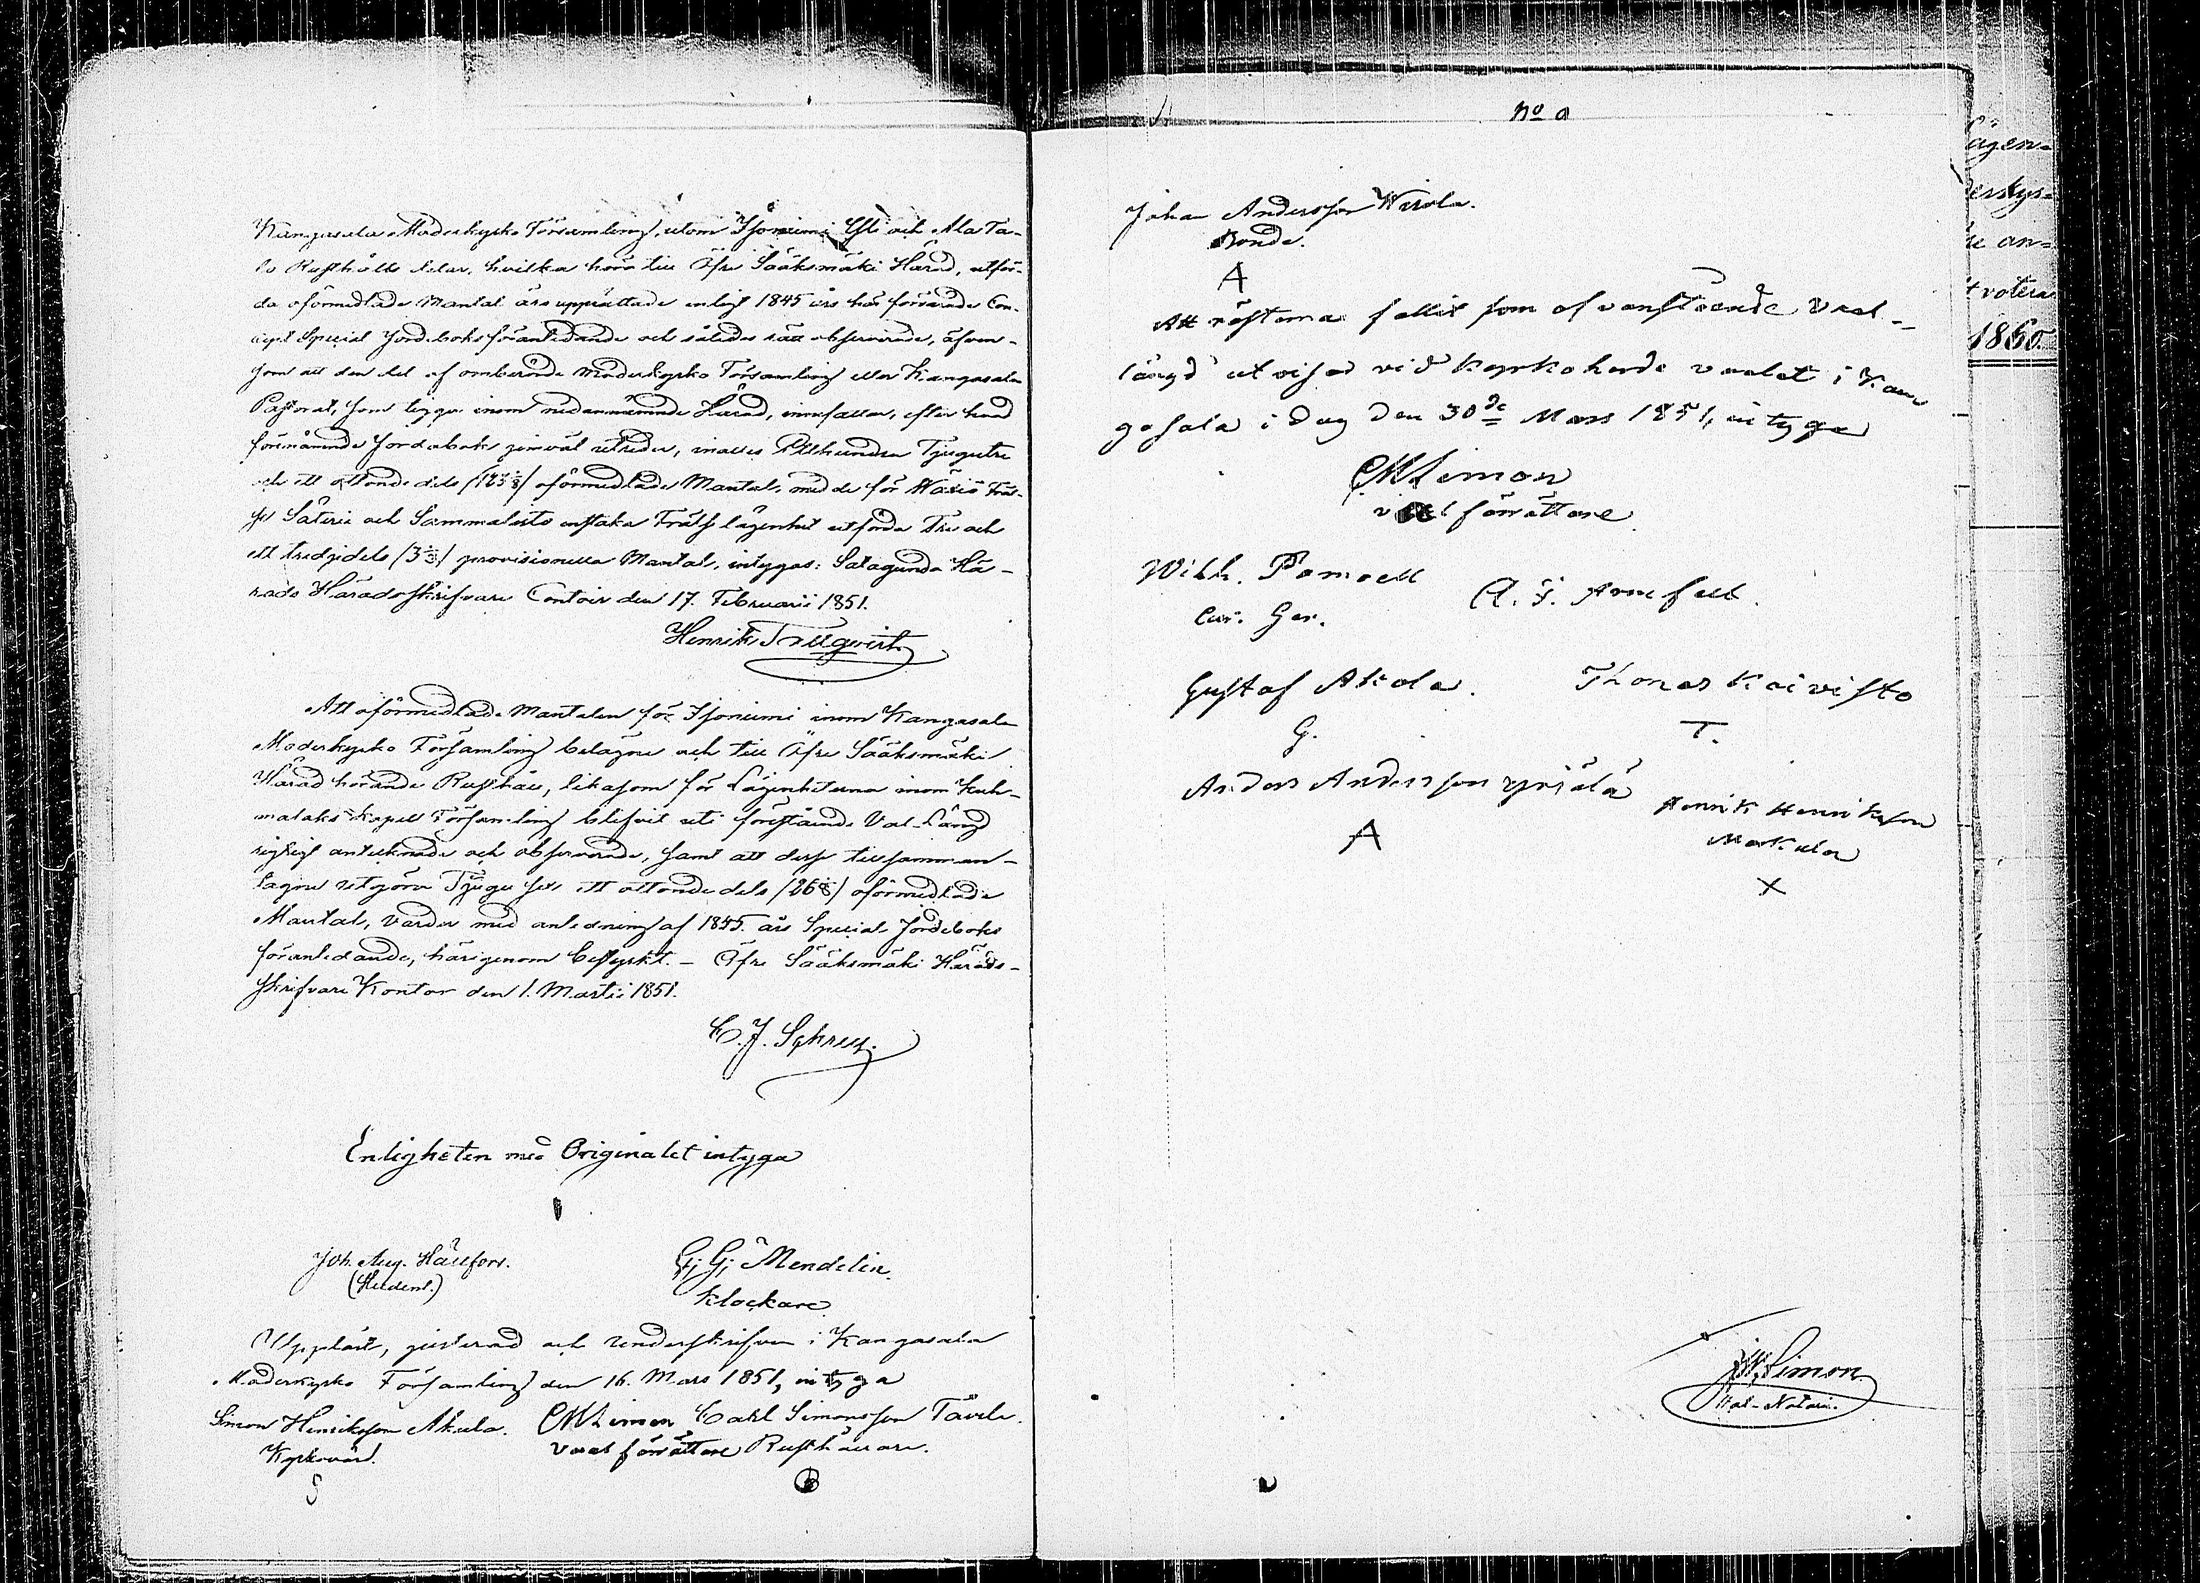 Kangasala Moderkyrko Församling, utom Isoniemi Yli och Ala Ta-
lo Rusthålls delar, hvilka höra till Öfre Sääksmäki Härad, utför-
da oförmedlade Mantal äro upprättade enligt 1845 års här förvarade Con-
cept Special Jordeboks föranledande och således rätt observerade, äfven-
som att den del af omberörde Moderkyrko Församling eller Kangasala
Pastorat, som ligger inom nedannämnde Härad, innefattar, efter hvad
förenämnde Jordabok jemväl utreder, inalles Etthundra Tjugutre
och ett attondedels (123 1/8) oförmedlade Mantal, med de för Wäxiö Fräl-
se Säteri och Sammalisto enstaka Frälse lägenhet utförda Tre och
ett tredjedels (3 1/3) provisionella Mantal, intygas: Satagunda Hä-
rads Häradsskrifvare Contoir den 17. Februarii 1851.
Henrik
Att oförmedlade Mantalen för Isoniemi inom Kangasala
Moderkyrko Församling belägne och till Öfre Sääksmäki
Härad hörande Rusthåll, likasom för Lägenheterna inom Kuh-
malaks Kapell Församling blifvit uti förestående Val-Längd
rigtigt antecknade och observerade, samt att desse tillsamman-
tagne utgöra Tjugu sex ett attondedels (26 1/8) oförmedlade
Mantal, varder med anledning af 1845. års Special Jordeboks
föranledande, härigenom bestyrkt. - Öfre Sääksmäki Härads-
skrifvare Kontor den 1. Martii 1851.
C. J.
Enligheten med Originalet intyga
Joh. Aug. Hällfors.
(Student.)
G; G; Mendelin.
Klockare
Uppläst, justerad och underskrifven i Kangasala
Moderkyrko Församling den 16. Mars 1851, intyga
Simon Henriksson Äkula. CM Limon Carl Simonsson Tavela.
Kyrkovärd. Valförrättare Rusthållare.
S
No
Johan Andersson Wissola.
Bonde.
A
Att rösterna fallit som ofvanstående Val-
längd utvisar vid Kyrkoherde valet i Kan
gasala i dag den 30de Mars 1851, intyga
CM Limon
valförrättare
Wilh. Pomoell
Cur. Ger.
A. F. Armfelt.
Gustaf Akola.
G.
Thomas Koivisto
T.
Anders Andersson Yrjälä
A
Henrik Henriksson
Markula
X
Limon.
Val-Notarie.
ägen-
erskys-
re an-
t votera
1860.